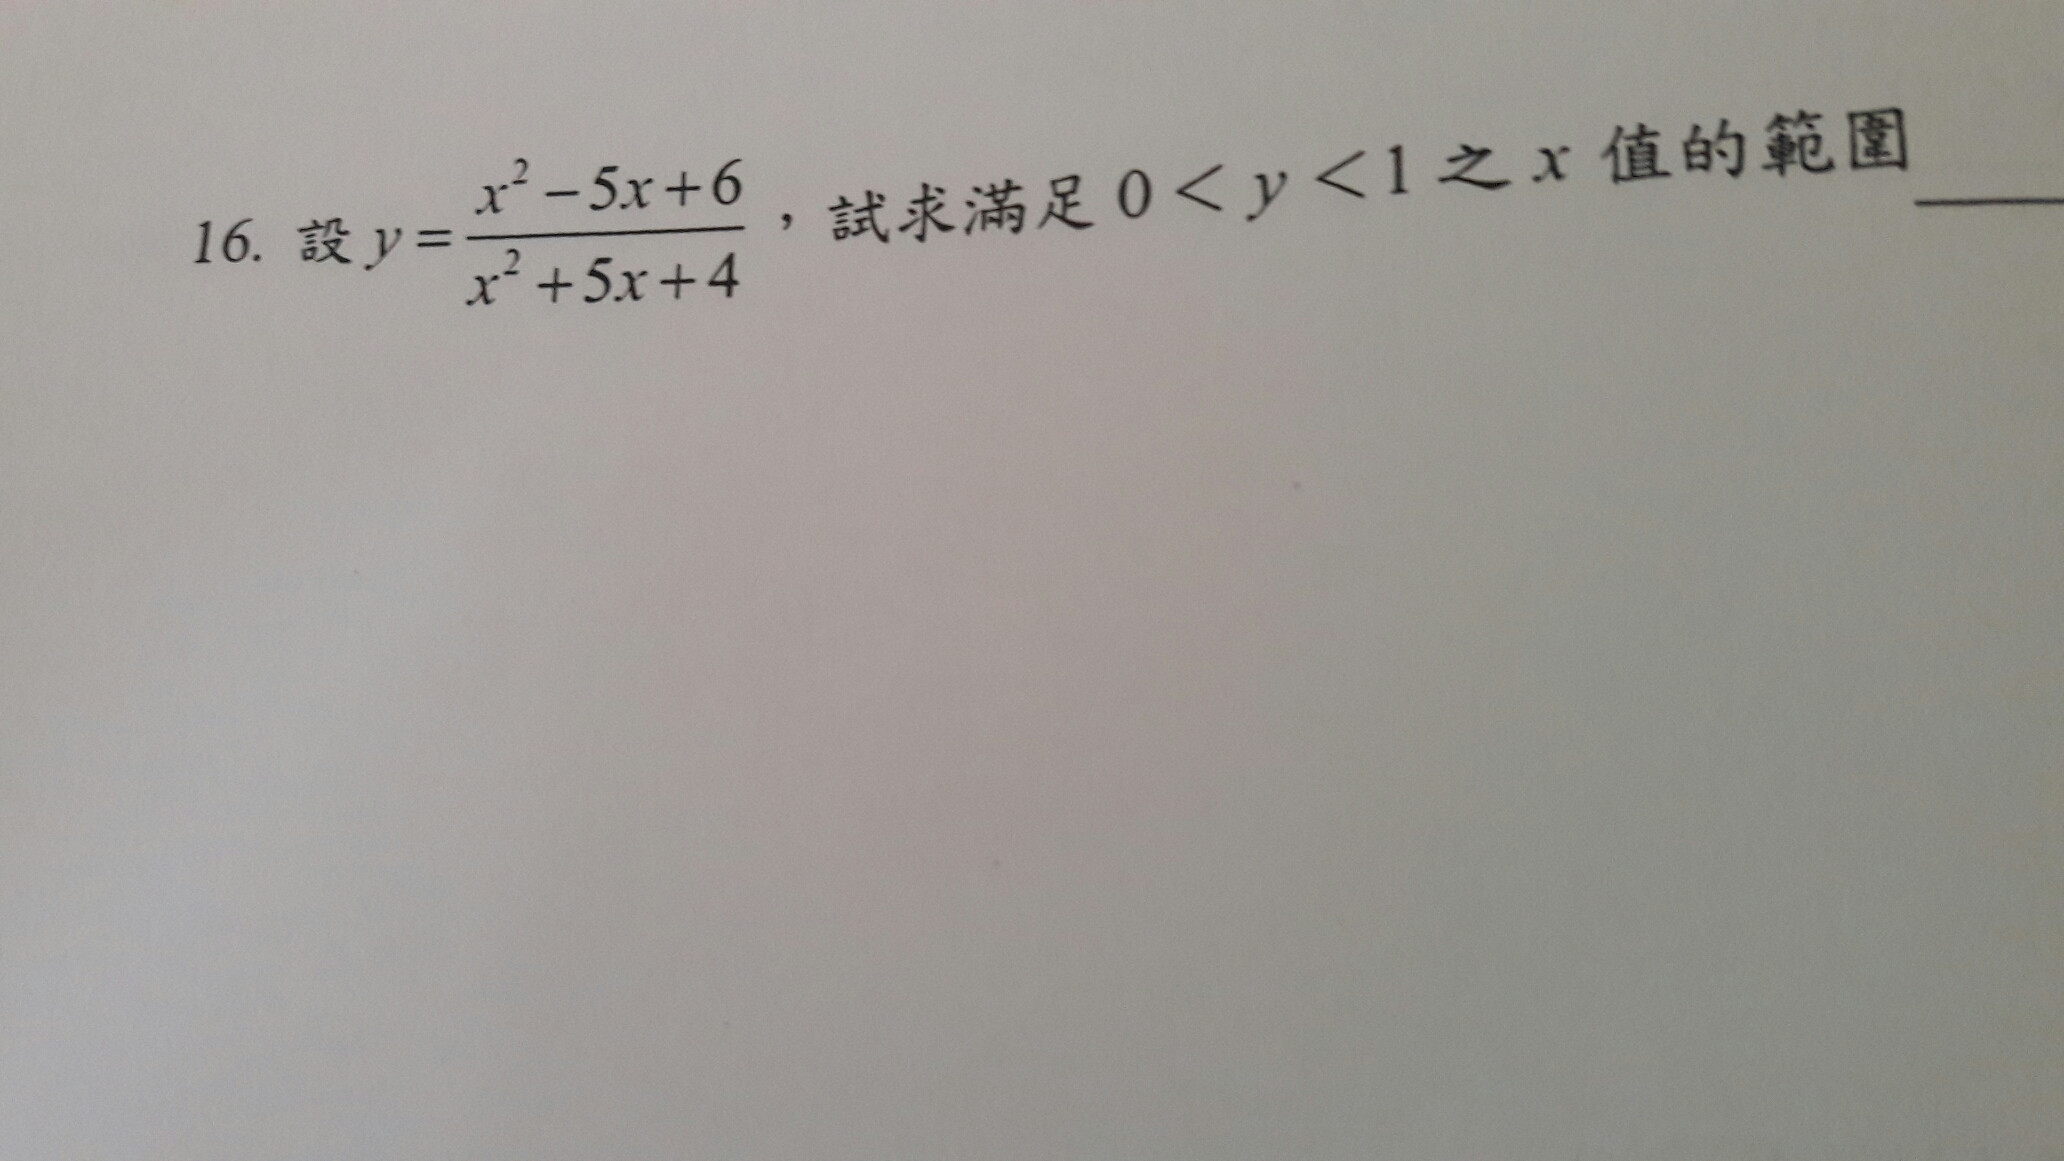 16. 設 y = \frac{x^2 - 5x + 6}{x^2 + 5x + 4}，試求滿足 0 < y < 1 之 x 值的範圍＿＿